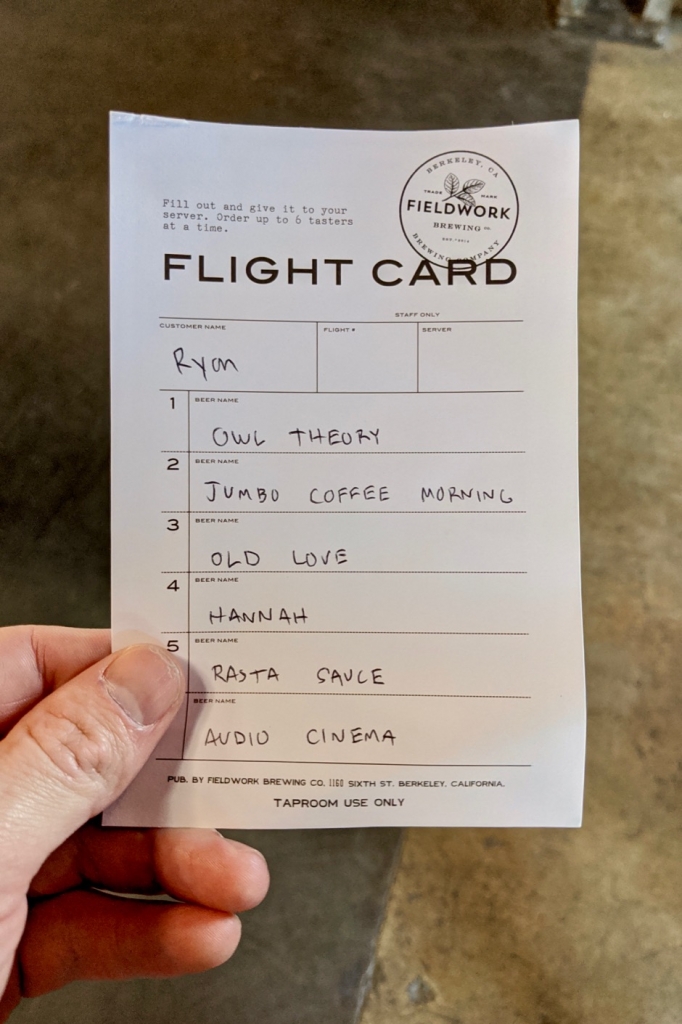 BERKELEY, CA
TRADE MARK
FIELDWORK
BREWING CO
BREWING COMPANY
Fill out and give it to your
server. Order up to 6 tasters
at a time.
FLIGHT CARD
STAFF ONLY
CUSTOMER NAME
FLIGHT #
SERVER
Ryan
1 BEER NAME
OWL THEORY
2 BEER NAME
JUMBO COFFEE MORNING
3 BEER NAME
OLD LOVE
4 BEER NAME
HANNAH
5 BEER NAME
RASTA SAUCE
BEER NAME
AUDIO CINEMA
PUB. BY FIELDWORK BREWING CO. 1160 SIXTH ST. BERKELEY, CALIFORNIA.
TAPROOM USE ONLY